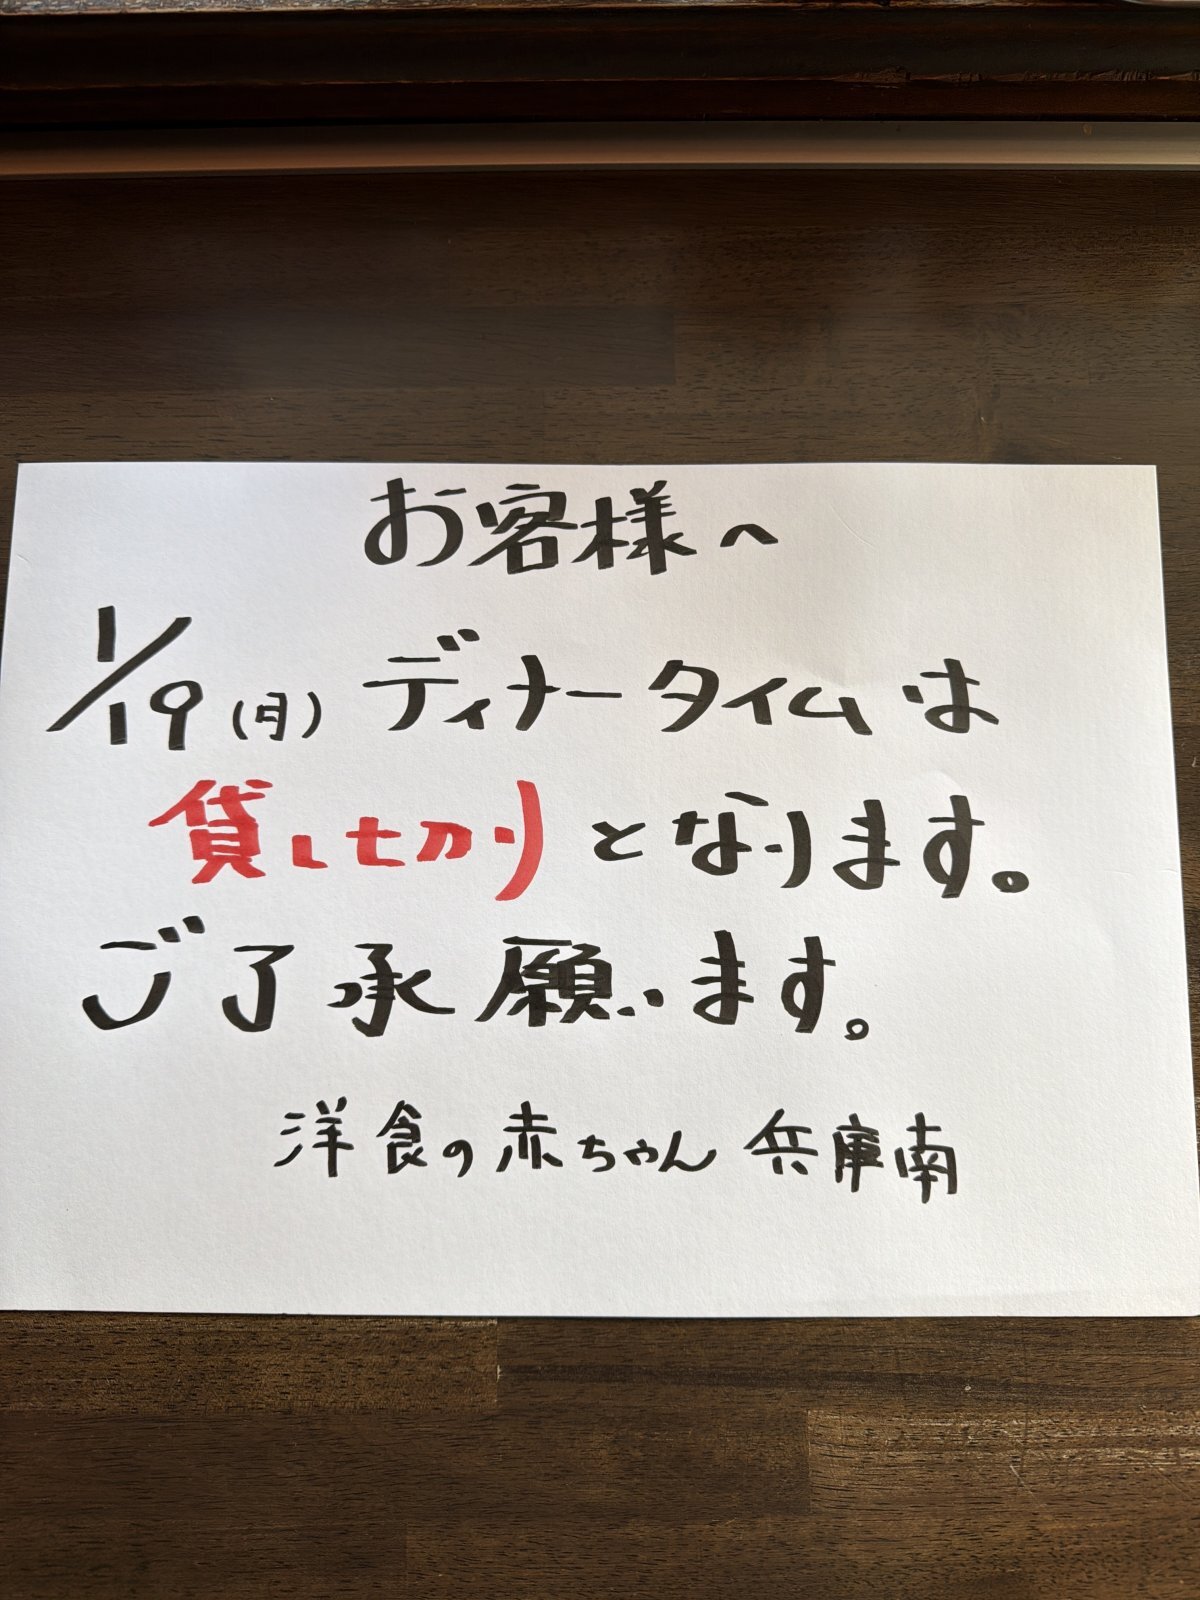 お客様へ
1/19(月) ディナータイムは
貸し切りとなります。
ご了承願います。
洋食の赤ちゃん 兵庫南